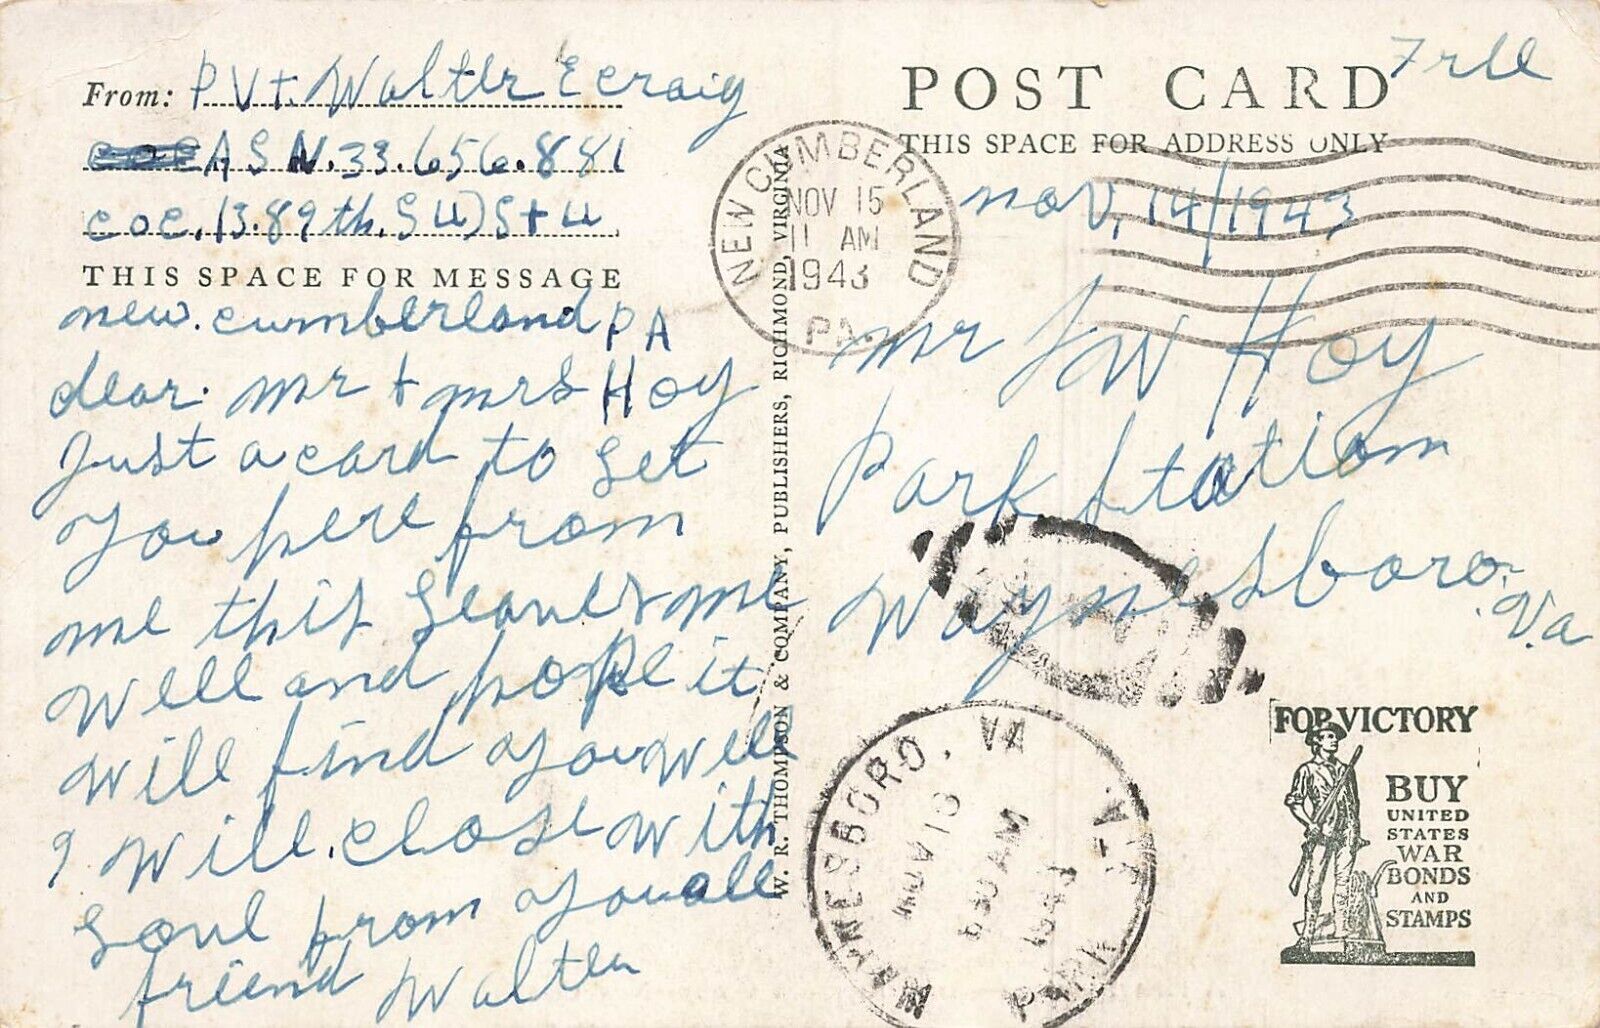 From: Pvt. Walter E Craig
A S N. 33.656.881
coe. 1389th. S U) S t U
THIS SPACE FOR MESSAGE
new. cumberland PA
dear. mr + mrs Hoy
Just a card to let
you here from
me this leaves me
well and hope it
will find you well
I will. close with
love from you all
friend Walter
W. R. THOMPSON & COMPANY, PUBLISHERS, RICHMOND, VIRGINIA
POST CARD
Free
THIS SPACE FOR ADDRESS ONLY
NEW CUMBERLAND
NOV 15
11 AM
1943
PA.
nov, 14/1943
mr J W Hoy
Park Station
Waynesboro
Va
WAYNESBORO, VA
NOV 16
AM
1943
PARK STA.
FOR VICTORY
BUY
UNITED
STATES
WAR
BONDS
AND
STAMPS